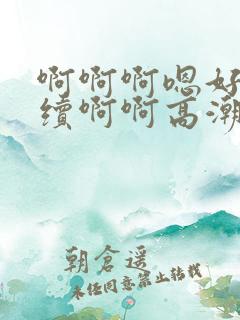 啊啊啊嗯好
续啊啊高潮
朝倉遥
未经同意禁止转载